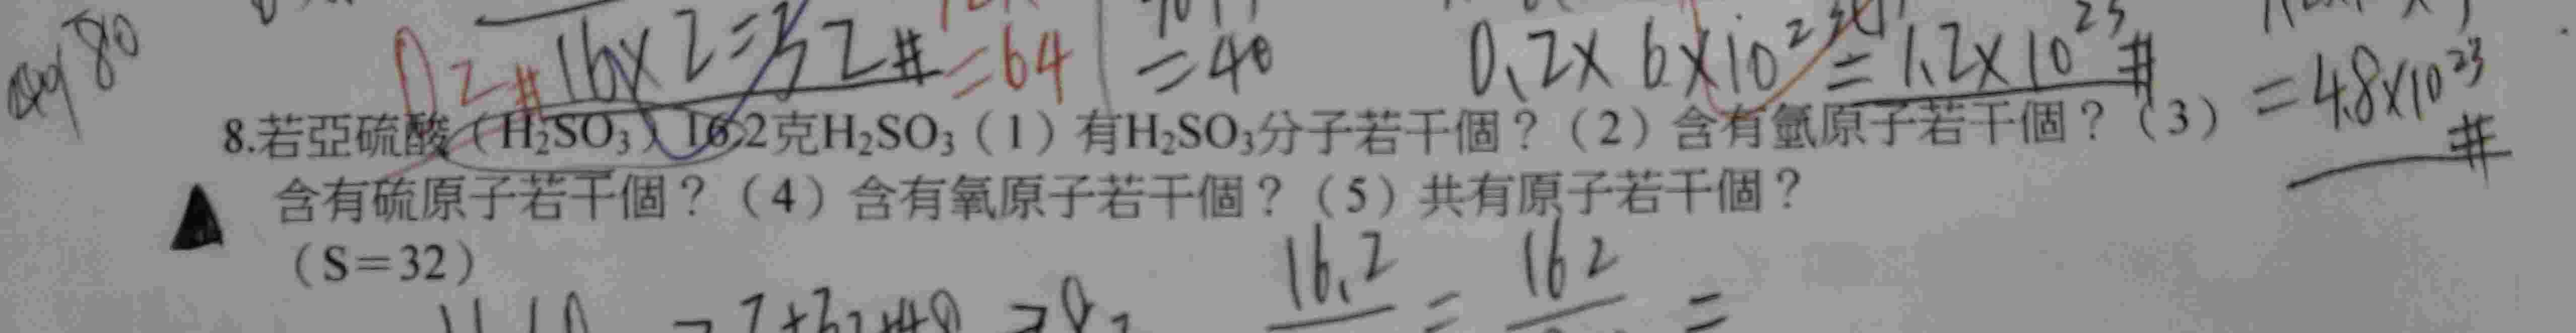 80
16×2=32# =64
=40
0.2×6×10²³=1.2×10²³#
=4.8×10²³#
8.若亞硫酸（H₂SO₃）16.2克H₂SO₃（1）有H₂SO₃分子若干個？（2）含有氫原子若干個？（3）
含有硫原子若干個？（4）含有氧原子若干個？（5）共有原子若干個？
（S＝32）
16.2 = 162 =